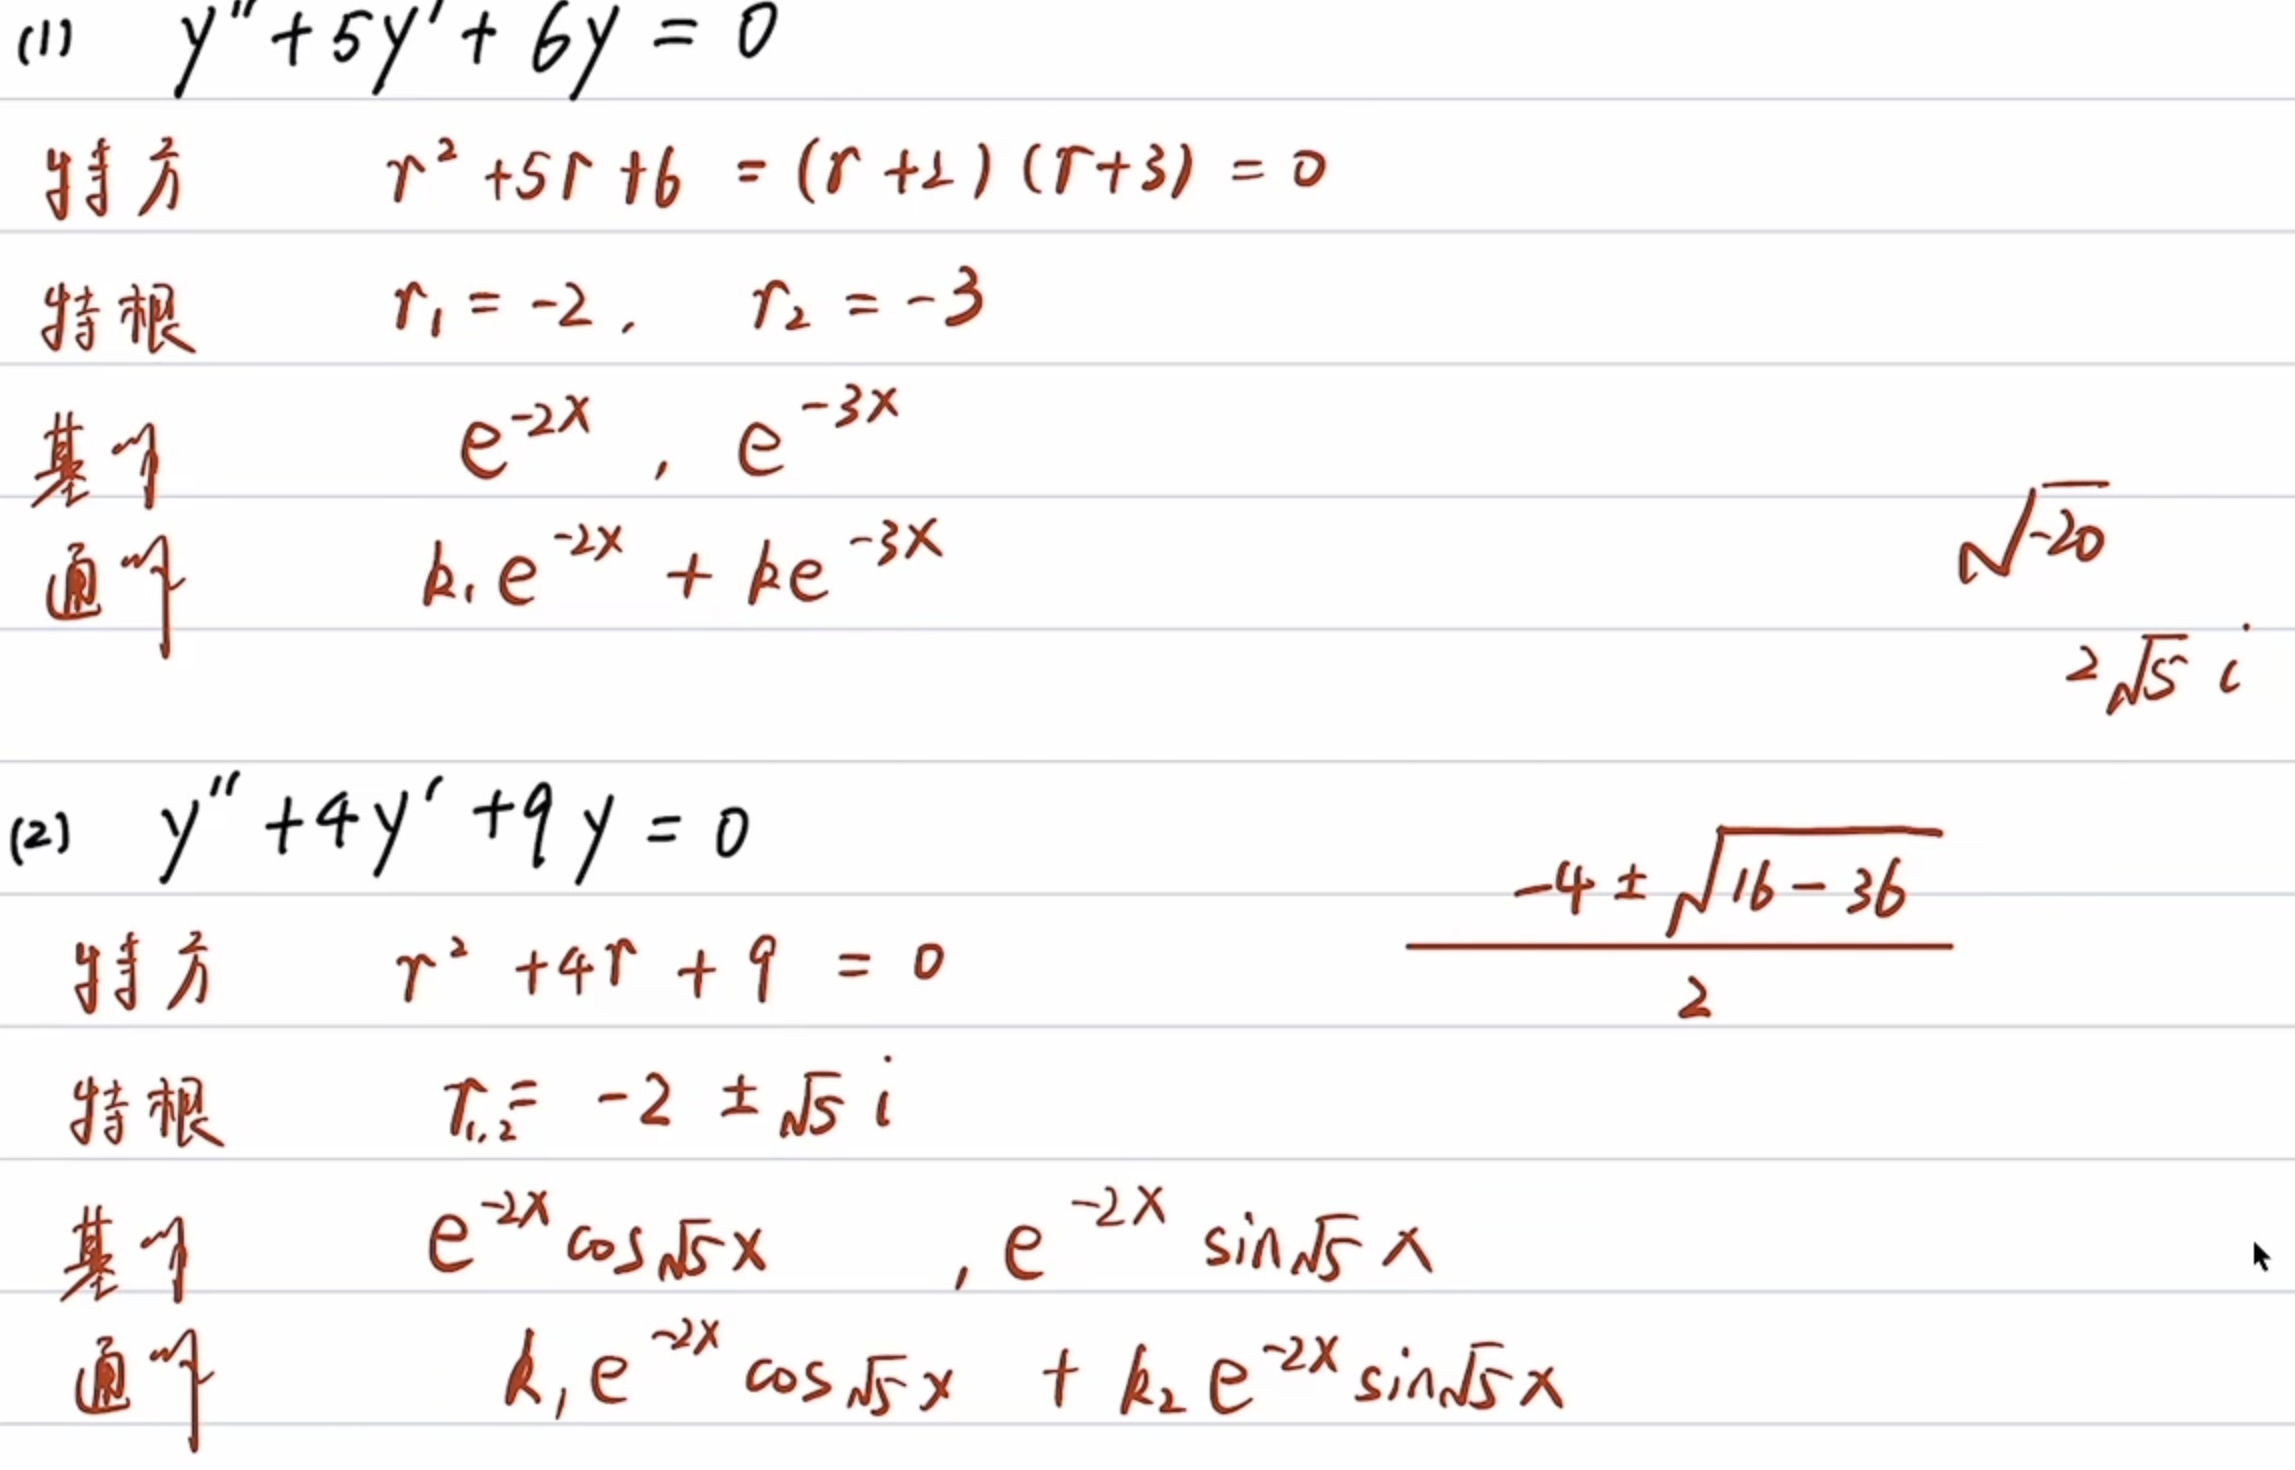 (1) y″ + 5y′ + 6y = 0
特方 r² + 5r + 6 = (r + 2) (r + 3) = 0
特根 r₁ = -2, r₂ = -3
基 e^{-2x} , e^{-3x}
通 k₁e^{-2x} + ke^{-3x}
√-20
2√5 i
(2) y″ + 4y′ + 9y = 0
-4 ± √16 - 36
2
特方 r² + 4r + 9 = 0
特根 r₁,₂ = -2 ± √5 i
基 e^{-2x} cos√5 x , e^{-2x} sin√5 x
通 k₁e^{-2x} cos√5 x + k₂e^{-2x} sin√5 x